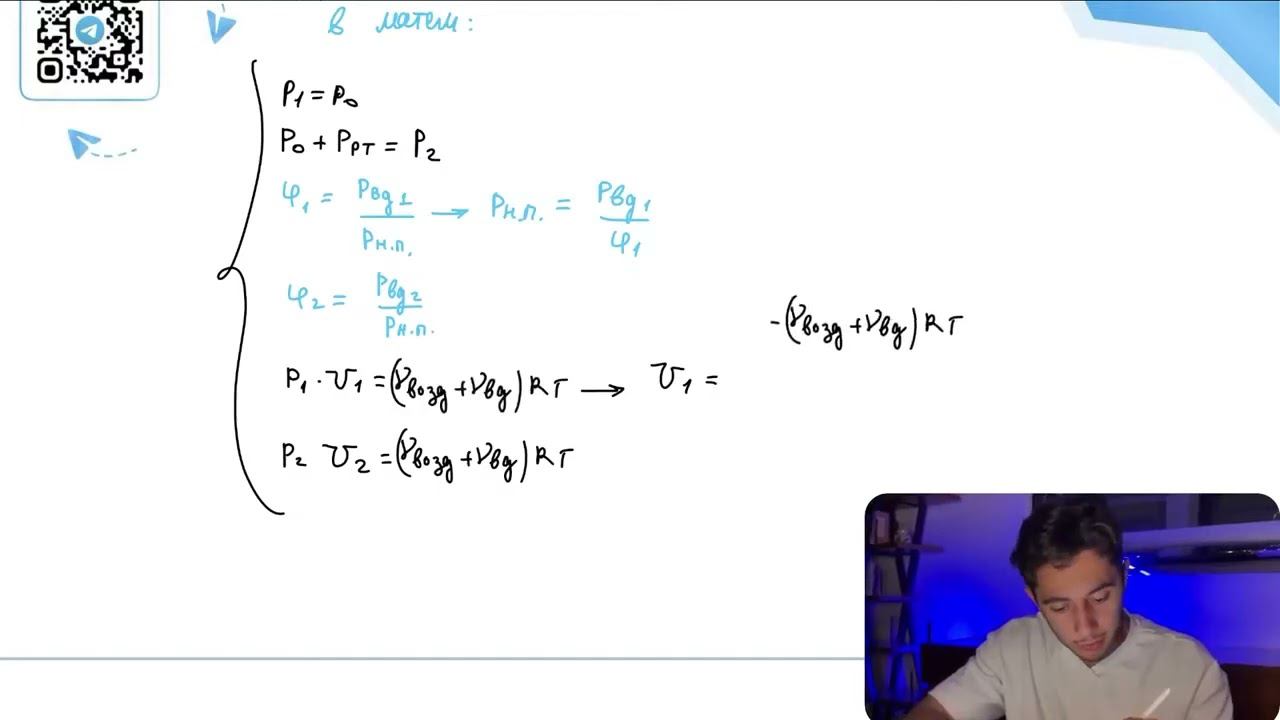 в матем:
P₁ = P₀
P₀ + Pрт = P₂
φ₁ = Pвд1 / Pн.п. → Pн.п. = Pвд1 / φ₁
φ₂ = Pвд2 / Pн.п.
-(νвозд + νвд) RT
P₁ · V₁ = (νвозд + νвд) RT → V₁ =
P₂ V₂ = (νвозд + νвд) RT